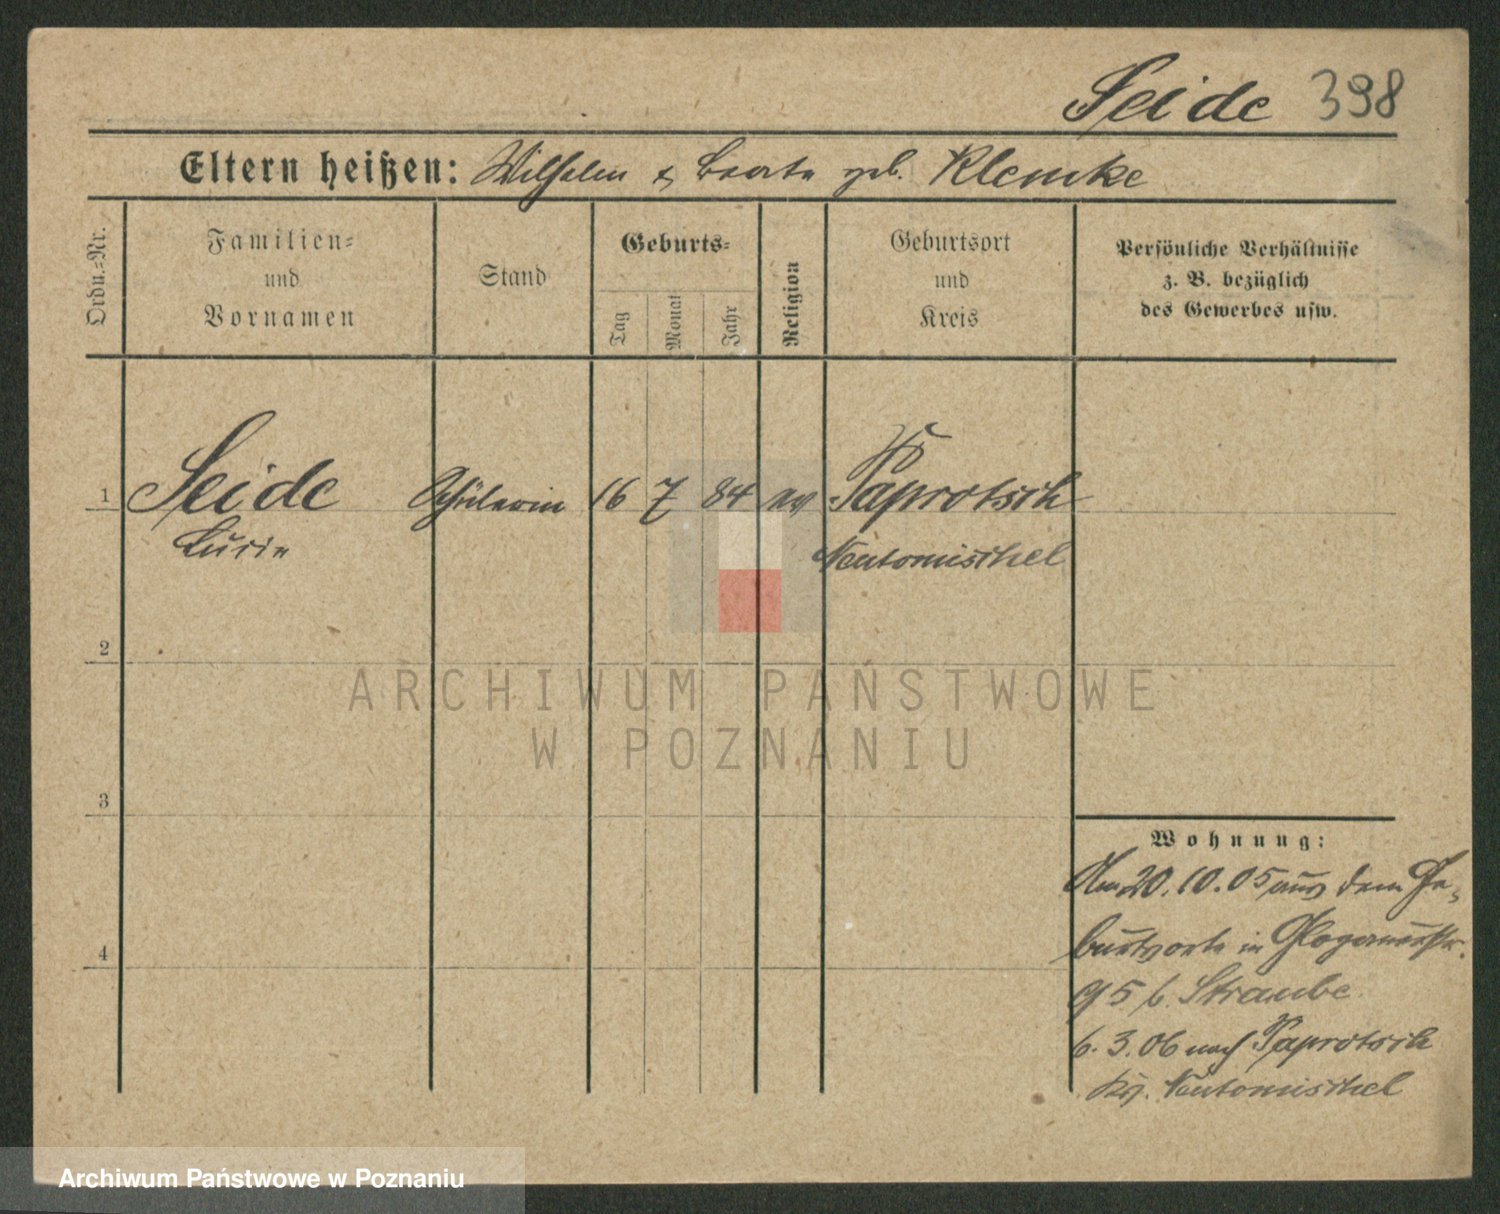 Seide 398
Eltern heißen: Wilhelm & Beate geb. Klemke
Ordn.-Nr.
Familien- und Vornamen
Stand
Geburts-
Tag
Monat
Jahr
Religion
Geburtsort und Kreis
Persönliche Verhältnisse z. B. bezüglich des Gewerbes usw.
1 Seide Schülerin 16 7 84 ev Paprotsch
Neutomischel
2
3
4
Wohnung:
Am 20.10.05 aus dem Ge-
burtsorte in Glogauerstr.
95 b. Straube
6.3.06 nach Paprotsch
Kr. Neutomischel
ARCHIWUM PAŃSTWOWE
W POZNANIU
Archiwum Państwowe w Poznaniu